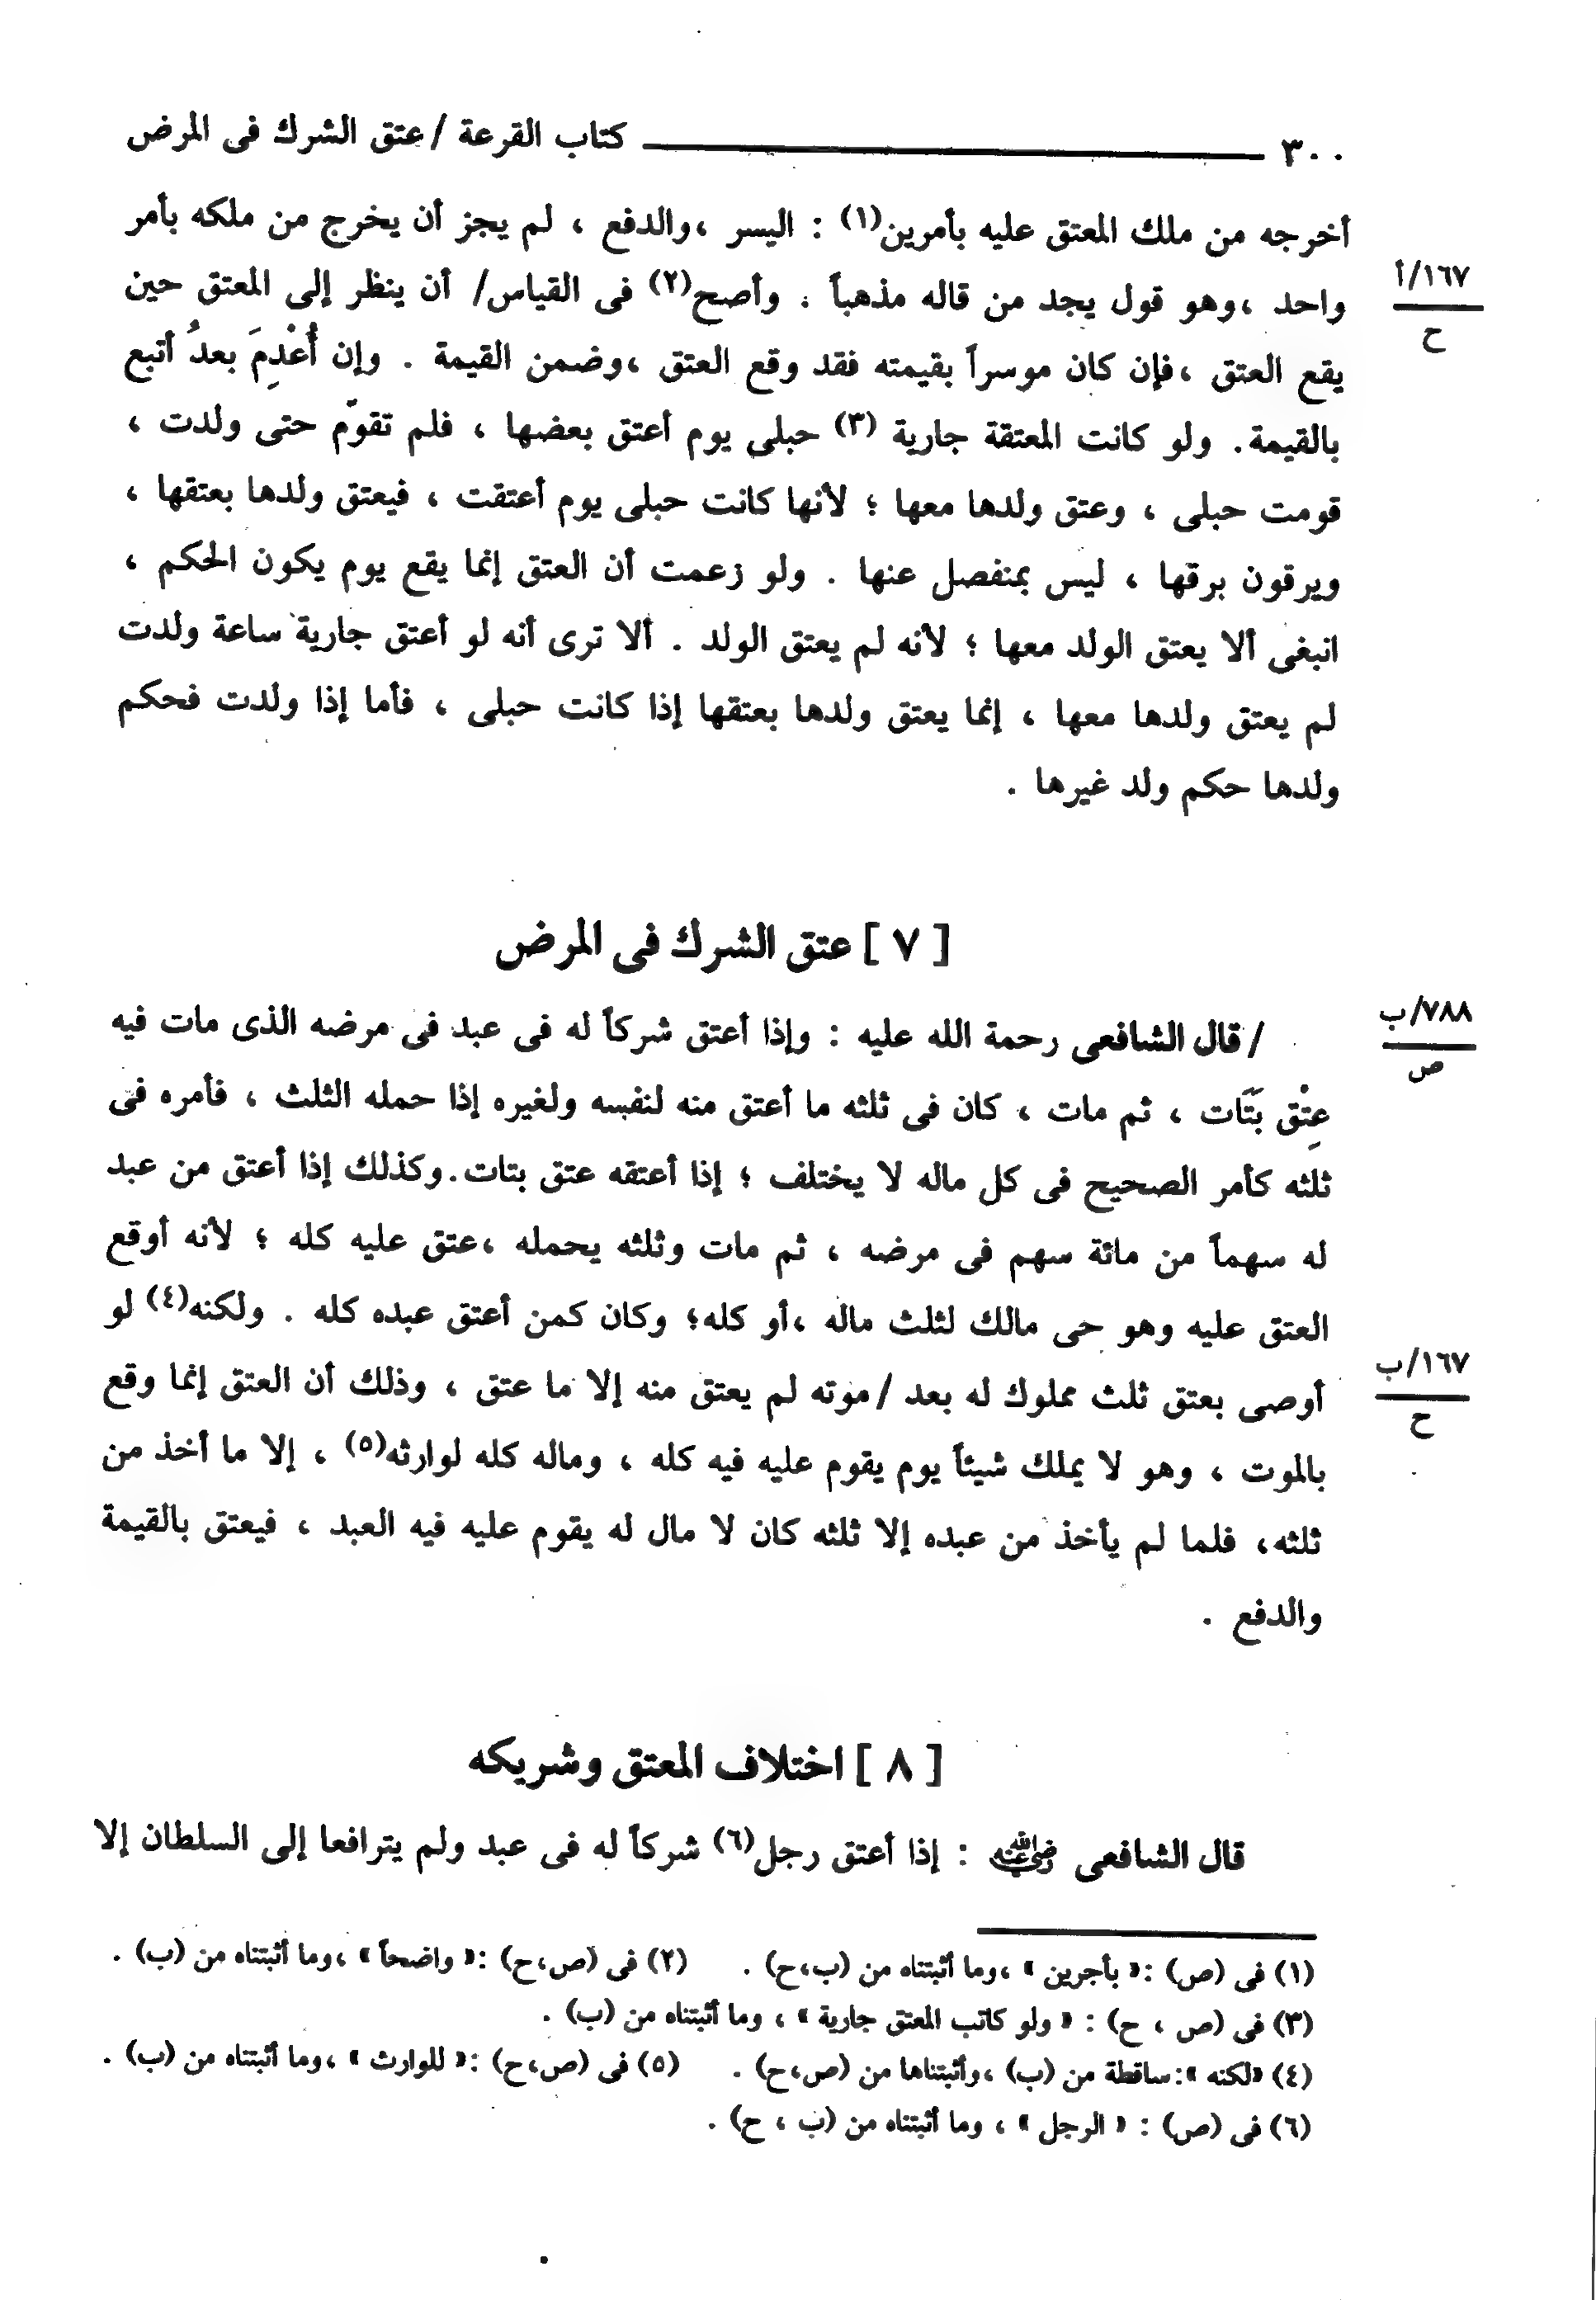 ٣٠٠ كتاب القرعة / عتق الشرك فى المرض
أخرجه من ملك المعتق عليه بأمرين(١) : اليسر ،والدفع ، لم يجز أن يخرج من ملكه بأمر
واحد ،وهو قول يجد من قاله مذهباً . وأصح(٢) فى القياس/ أن ينظر إلى المعتق حين
١٦٧/أ
ح
يقع العتق ،فإن كان موسراً بقيمته فقد وقع العتق ،وضمن القيمة . وإن أُعْدِمَ بعدُ أتبع
بالقيمة. ولو كانت المعتقة جارية (٣) حبلى يوم أعتق بعضها ، فلم تقوّم حتى ولدت ،
قومت حبلى ، وعتق ولدها معها ؛ لأنها كانت حبلى يوم أعتقت ، فيعتق ولدها بعتقها ،
ويرقون برقها ، ليس بمنفصل عنها . ولو زعمت أن العتق إنما يقع يوم يكون الحكم ،
انبغى ألا يعتق الولد معها ؛ لأنه لم يعتق الولد . ألا ترى أنه لو أعتق جارية ساعة ولدت
لم يعتق ولدها معها ، إنما يعتق ولدها بعتقها إذا كانت حبلى ، فأما إذا ولدت فحكم
ولدها حكم ولد غيرها .
[ ٧ ] عتق الشرك فى المرض
٧٨٨/ب
ص
/ قال الشافعى رحمة الله عليه : وإذا أعتق شركاً له فى عبد فى مرضه الذى مات فيه
عِتْق بَتَات ، ثم مات ، كان فى ثلثه ما أعتق منه لنفسه ولغيره إذا حمله الثلث ، فأمره فى
ثلثه كأمر الصحيح فى كل ماله لا يختلف ؛ إذا أعتقه عتق بتات.وكذلك إذا أعتق من عبد
له سهماً من مائة سهم فى مرضه ، ثم مات وثلثه يحمله ،عتق عليه كله ؛ لأنه أوقع
العتق عليه وهو حى مالك لثلث ماله ،أو كله؛ وكان كمن أعتق عبده كله . ولكنه(٤) لو
أوصى بعتق ثلث مملوك له بعد /موته لم يعتق منه إلا ما عتق ، وذلك أن العتق إنما وقع
١٦٧/ب
ح
بالموت ، وهو لا يملك شيئاً يوم يقوم عليه فيه كله ، وماله كله لوارثه(٥) ، إلا ما أخذ من
ثلثه، فلما لم يأخذ من عبده إلا ثلثه كان لا مال له يقوم عليه فيه العبد ، فيعتق بالقيمة
والدفع .
[ ٨ ] اختلاف المعتق وشريكه
قال الشافعى رضي الله عنه : إذا أعتق رجل(٦) شركاً له فى عبد ولم يترافعا إلى السلطان إلا
(١) فى (ص) :« بأجرين » ،وما أثبتناه من (ب،ح) . (٢) فى (ص،ح) :« واضحاً » ،وما أثبتناه من (ب) .
(٣) فى (ص ، ح) : « ولو كاتب المعتق جارية » ، وما أثبتناه من (ب) .
(٤) «لكنه »:ساقطة من (ب) ،وأثبتناها من (ص،ح) . (٥) فى (ص،ح) :« للوارث » ،وما أثبتناه من (ب) .
(٦) فى (ص) : « الرجل » ، وما أثبتناه من (ب ، ح) .